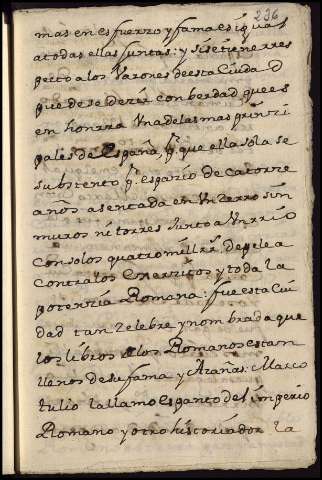 236
mas en esfuerzo y fama es igual
a todas ellas juntas: y si se tiene rres
pecto a los Varones de esta Ciudad
puede se dezir con berdad que es
en honrra Una de las mas prinçi
pales de España, pr. que ella sola se
substento pr. espazio de catorze
años asentada en Un zerro sin
muros ni torres Junto a Un rrio
con solos quatro mill
contra los exerzitos y toda la
potenzia Romana: fue esta Ciu
dad tan zelebre y nombrada que
los libros de los Romanos estam
llenos de su fama y Azañas: Marco
tulio la llamo espanto del imperio
Romano y otro historiador la